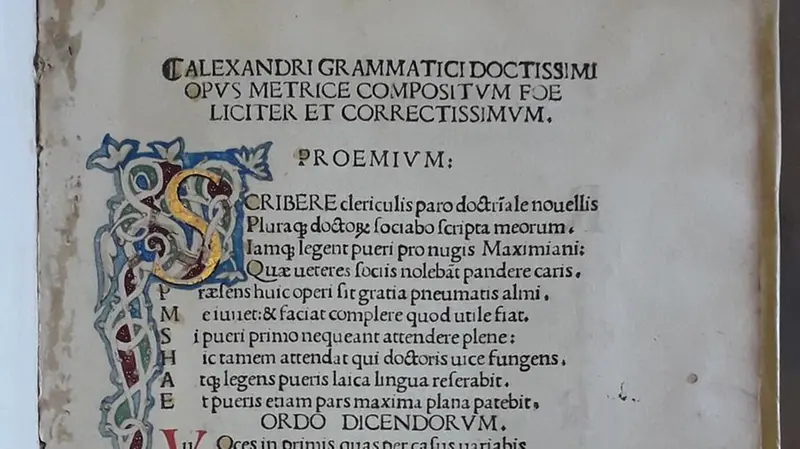 ALEXANDRI GRAMMATICI DOCTISSIMI
OPVS METRICE COMPOSITVM FOE
LICITER ET CORRECTISSIMVM.
PROEMIVM:
SCRIBERE clericulis paro doctrīale nouellis
Pluraqꝫ doctoꝝ sociabo scripta meorum.
Iamqꝫ legent pueri pro nugis Maximiani:
Quæ ueteres sociis nolebāt pandere caris.
Præsens huic operi sit gratia pneumatis almi.
Me iuuet: & faciat complere quod utile fiat.
Si pueri primo nequeant attendere plene:
Hic tamen attendat qui doctoris uice fungens.
Atqꝫ legens pueris laica lingua referabit.
Et pueris etiam pars maxima plana patebit.
ORDO DICENDORVM.
Voces in primis quas per casus uariabis